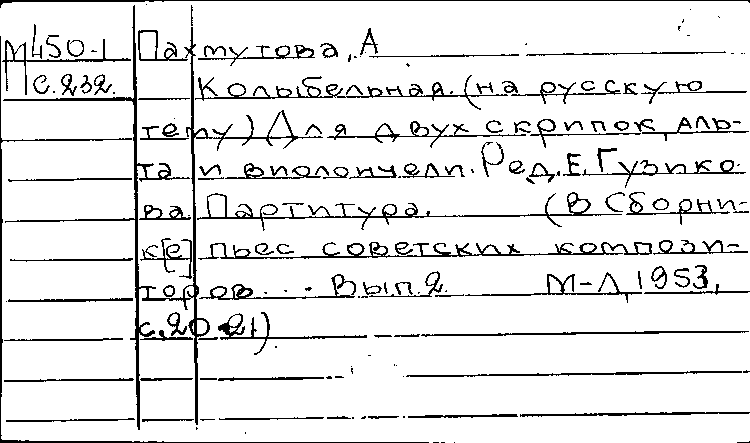 М450-1 Пахмутова, А
с.232. Колыбельная. (на русскую
тему) Для двух скрипок, аль-
та и виолончели. Ред. Е. Гузико-
ва Партитура. (В Сборни-
к[е] пьес советских компози-
торов... Вып. 2 М-Л, 1953,
с. 20-21)